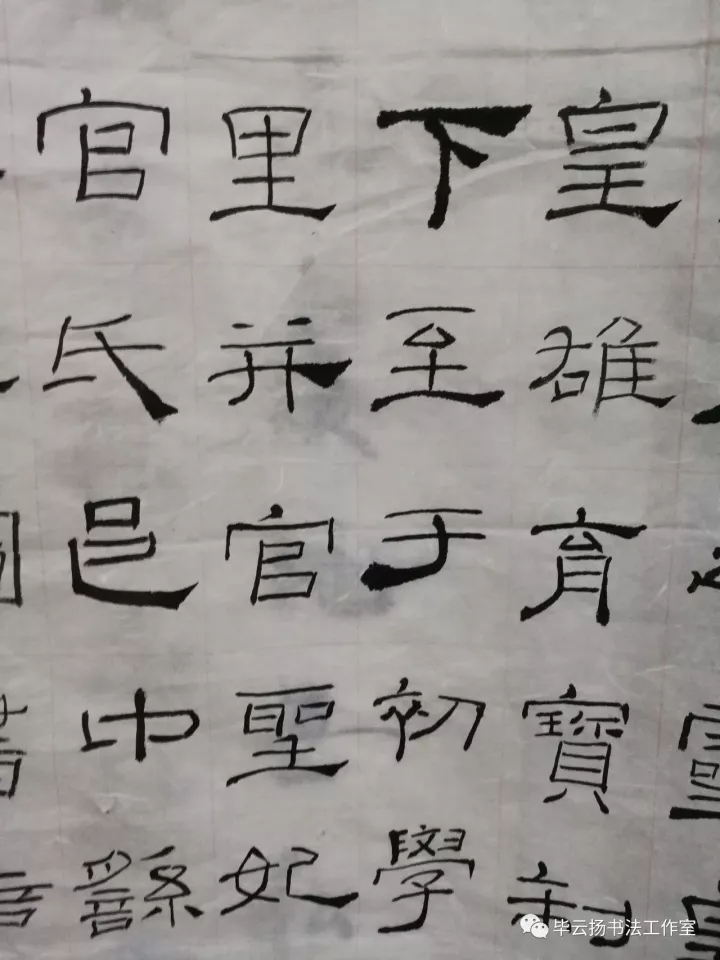 皇雄育寶制
下至于初學
里并官聖妃
官氏邑中繇
毕云扬书法工作室